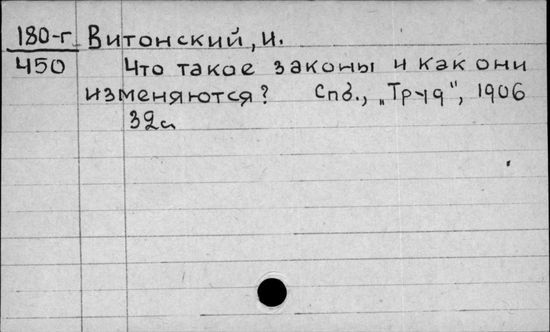 180-г Витонский, И.
450 Что такое законы и как они
изменяются? Спб., „Труд", 1906
32с